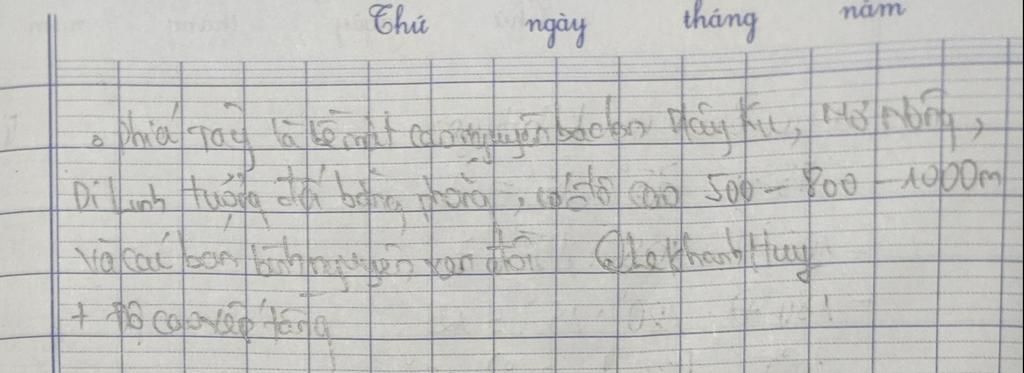 Thứ ngày tháng năm
. phía Tây là bề mặt cao nguyên bác lơn Plây Ku, Mơ Nông,
Di Linh tưởng đối bằng phẳng, có độ cao 500 - 800 - 1000m
và các bán bình nguyên xen đồi Khanh Huy
+ Độ cao xếp tầng